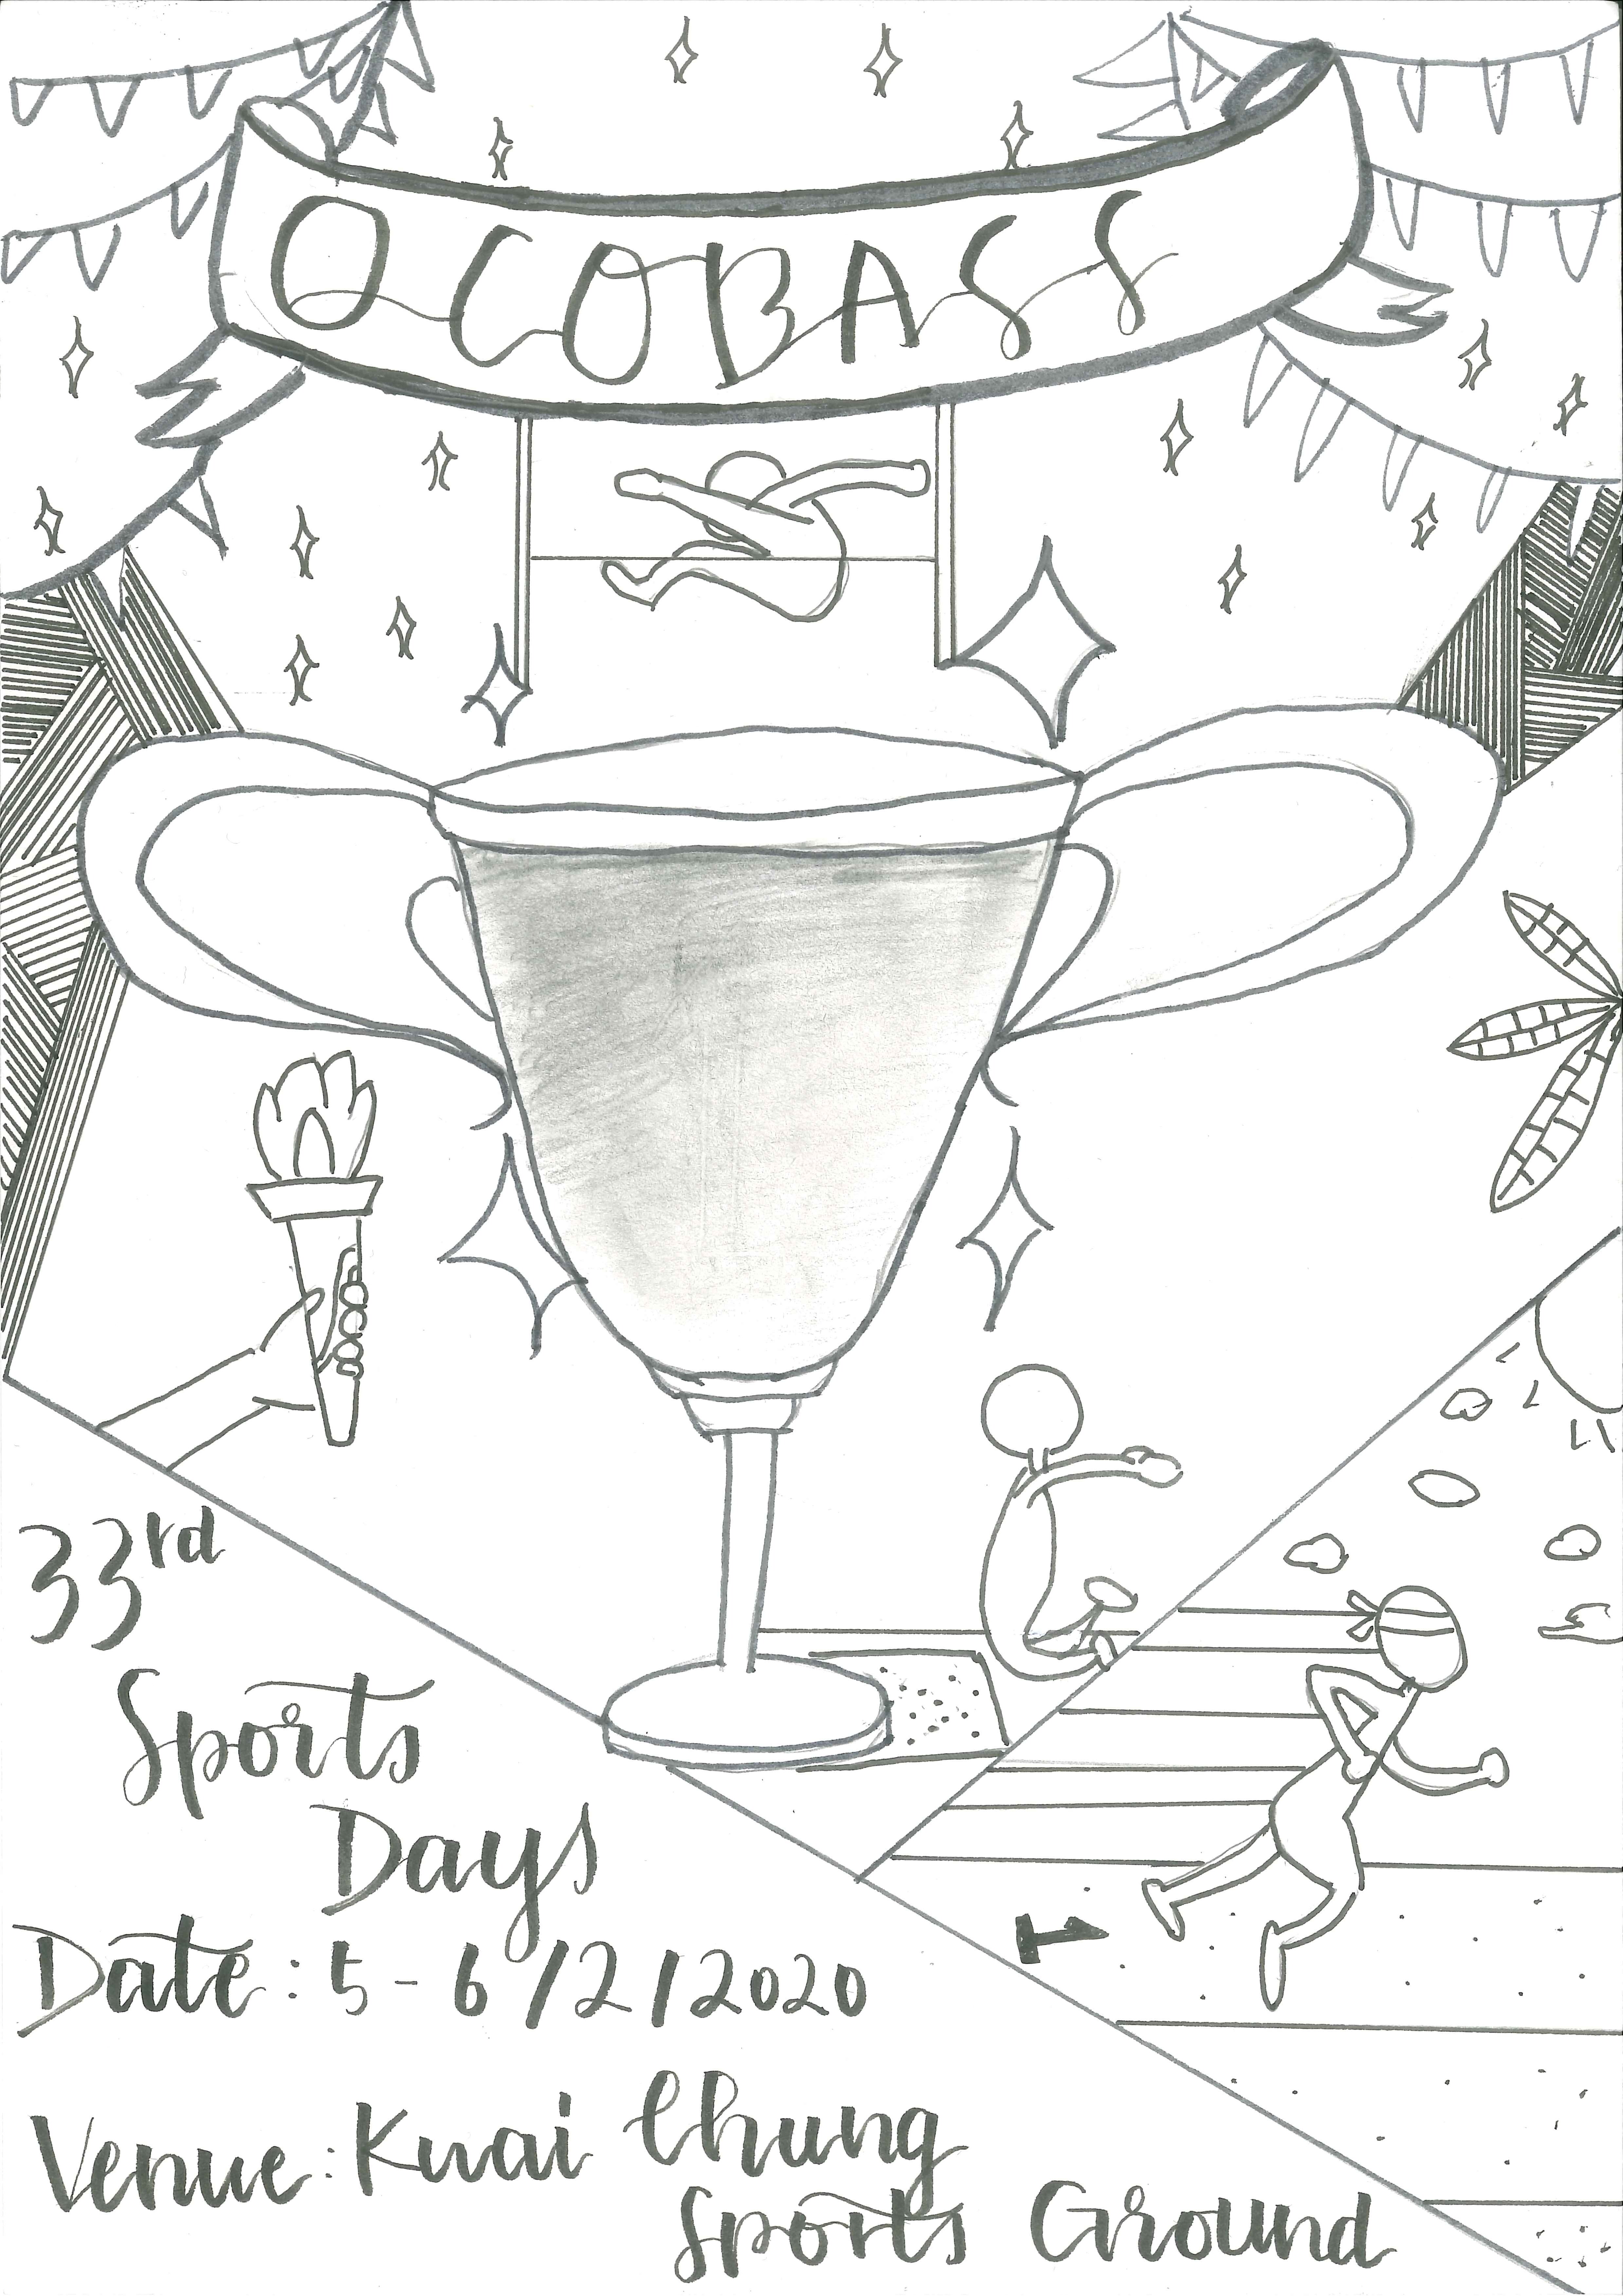 QCOBASS
33rd
Sports
Days
Date: 5-6/2/2020
Venue: Kwai Chung
Sports Ground
1